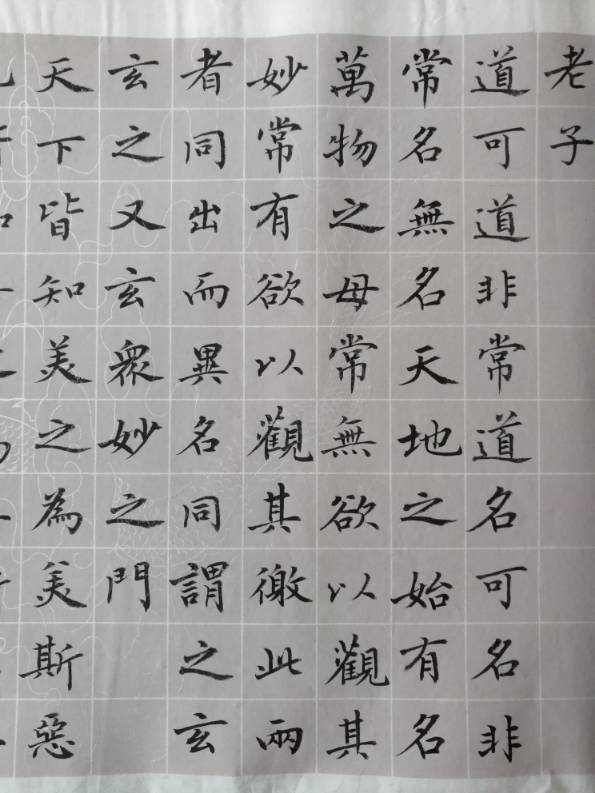 老子
道可道非常道名可名非
常名無名天地之始有名
萬物之母常無欲以觀其
妙常有欲以觀其徼此兩
者同出而異名同謂之玄
玄之又玄衆妙之門
天下皆知美之為美斯惡